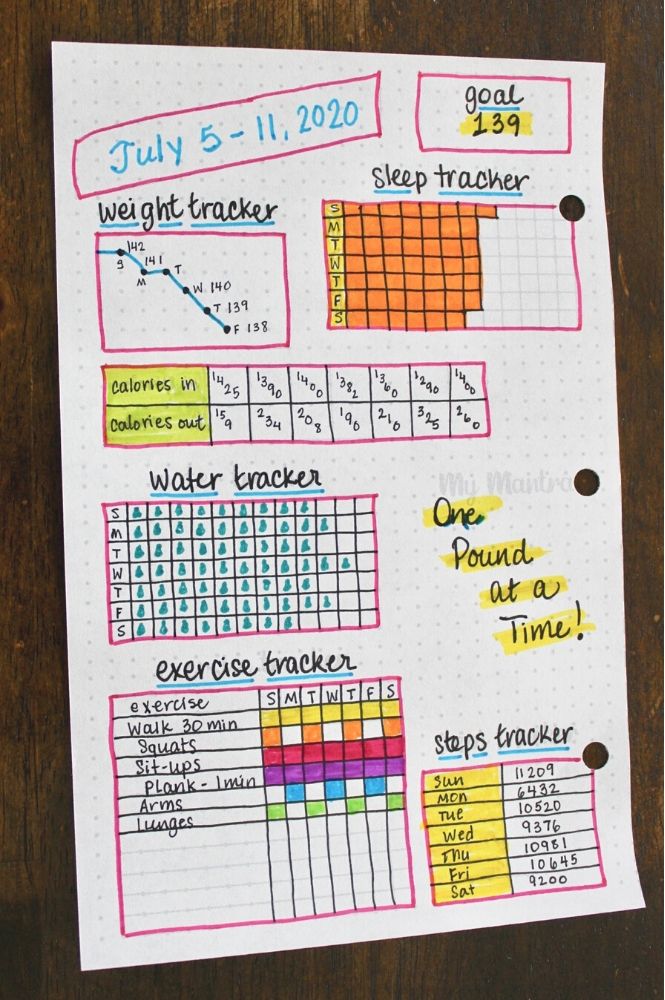 July 5 - 11, 2020
goal
139
weight tracker
142
S
141
M
T
W 140
T 139
F 138
sleep tracker
S
M
T
W
T
F
S
calories in 1425 1390 1400 1382 1360 1290 1400
calories out 159 234 208 190 210 325 260
water tracker
S
M
T
W
T
F
S
My Mantra
One
Pound
at a
Time!
exercise tracker
exercise S M T W T F S
Walk 30 min
Squats
Sit-ups
Plank - 1min
Arms
Lunges
steps tracker
Sun 11209
Mon 6432
Tue 10520
Wed 9376
Thu 10981
Fri 10645
Sat 9200